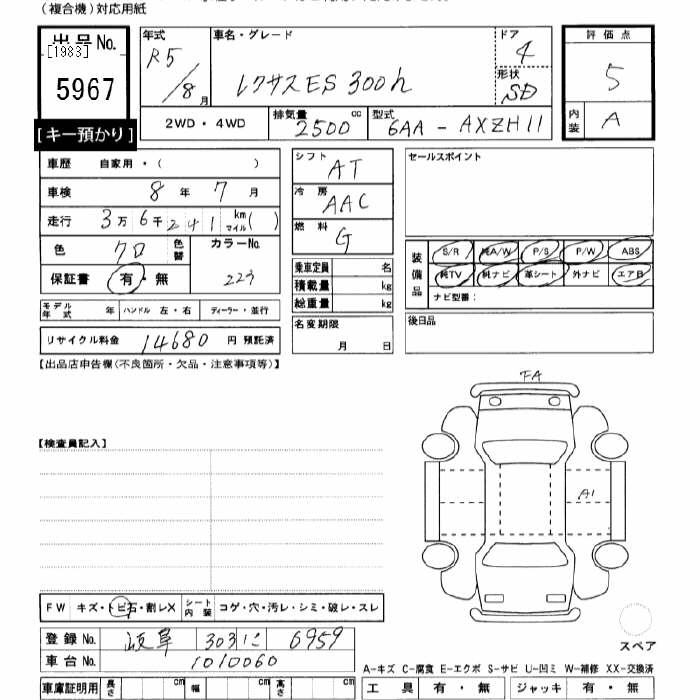 （複合機）対応用紙
出品No.
[1983]
5967
[キー預かり]
年式
R5/8月
車名・グレード
レクサスES 300h
ドア
4
形状
SD
評価点
5
内装
A
2WD・4WD
排気量
2500cc
型式
6AA - AXZH11
車歴 自家用・（ ）
車検 8年 7月
走行 3万6千241 km マイル( )
色 クロ 色替
カラーNo.
223
保証書 有・無
モデル年式 年 ハンドル 左・右 ディーラー・並行
リサイクル料金 14680円 預託済
シフト
AT
冷房
AAC
燃料
G
乗車定員 名
積載量 kg
総重量 kg
名変期限
月 日
セールスポイント
装備品
S/R 純A/W P/S P/W ABS
純TV 純ナビ 革シート 外ナビ エアB
ナビ型番：
後日品
【出品店申告欄(不良箇所・欠品・注意事項等)】
FA
A1
【検査員記入】
FW キズ・トビ石・割レX シート内装 コゲ・穴・汚レ・シミ・破レ・スレ
スペア
登録No. 岐阜 303 に 6959
車台No. 1010060
A-キズ C-腐食 E-エクボ S-サビ U-凹ミ W-補修 XX-交換済
車庫証明用 長さ cm 幅 cm 高さ cm
工具 有・無 ジャッキ 有・無